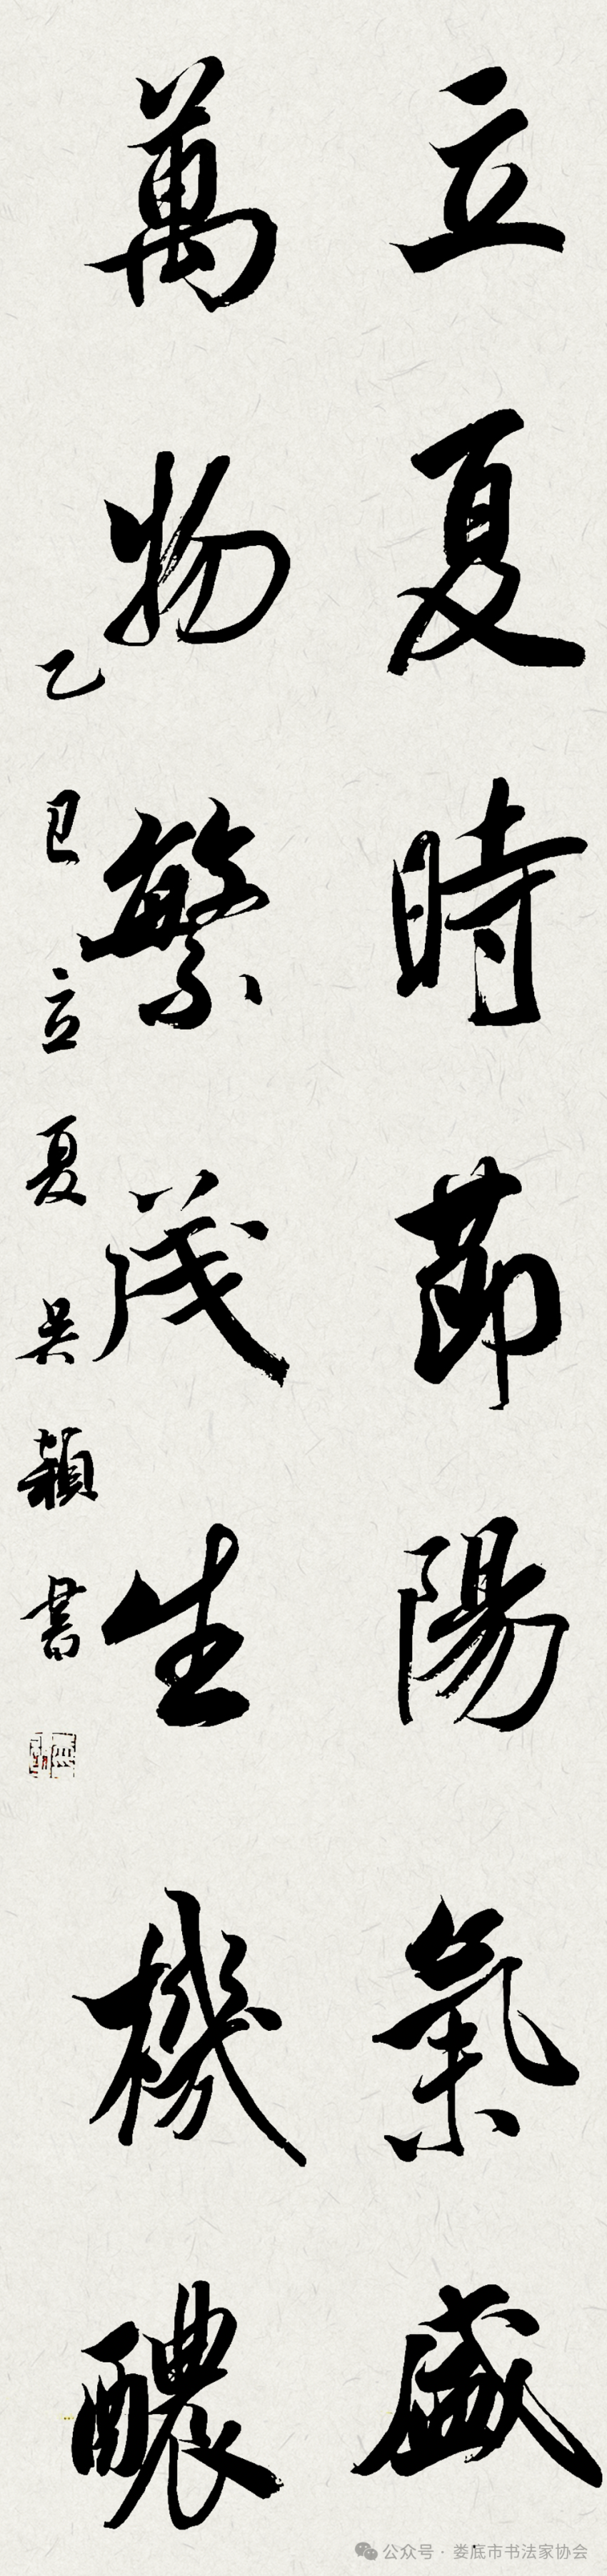 立夏時節陽氣盛
萬物繁茂生機醲
乙巳立夏吴穎書
公众号 · 娄底市书法家协会